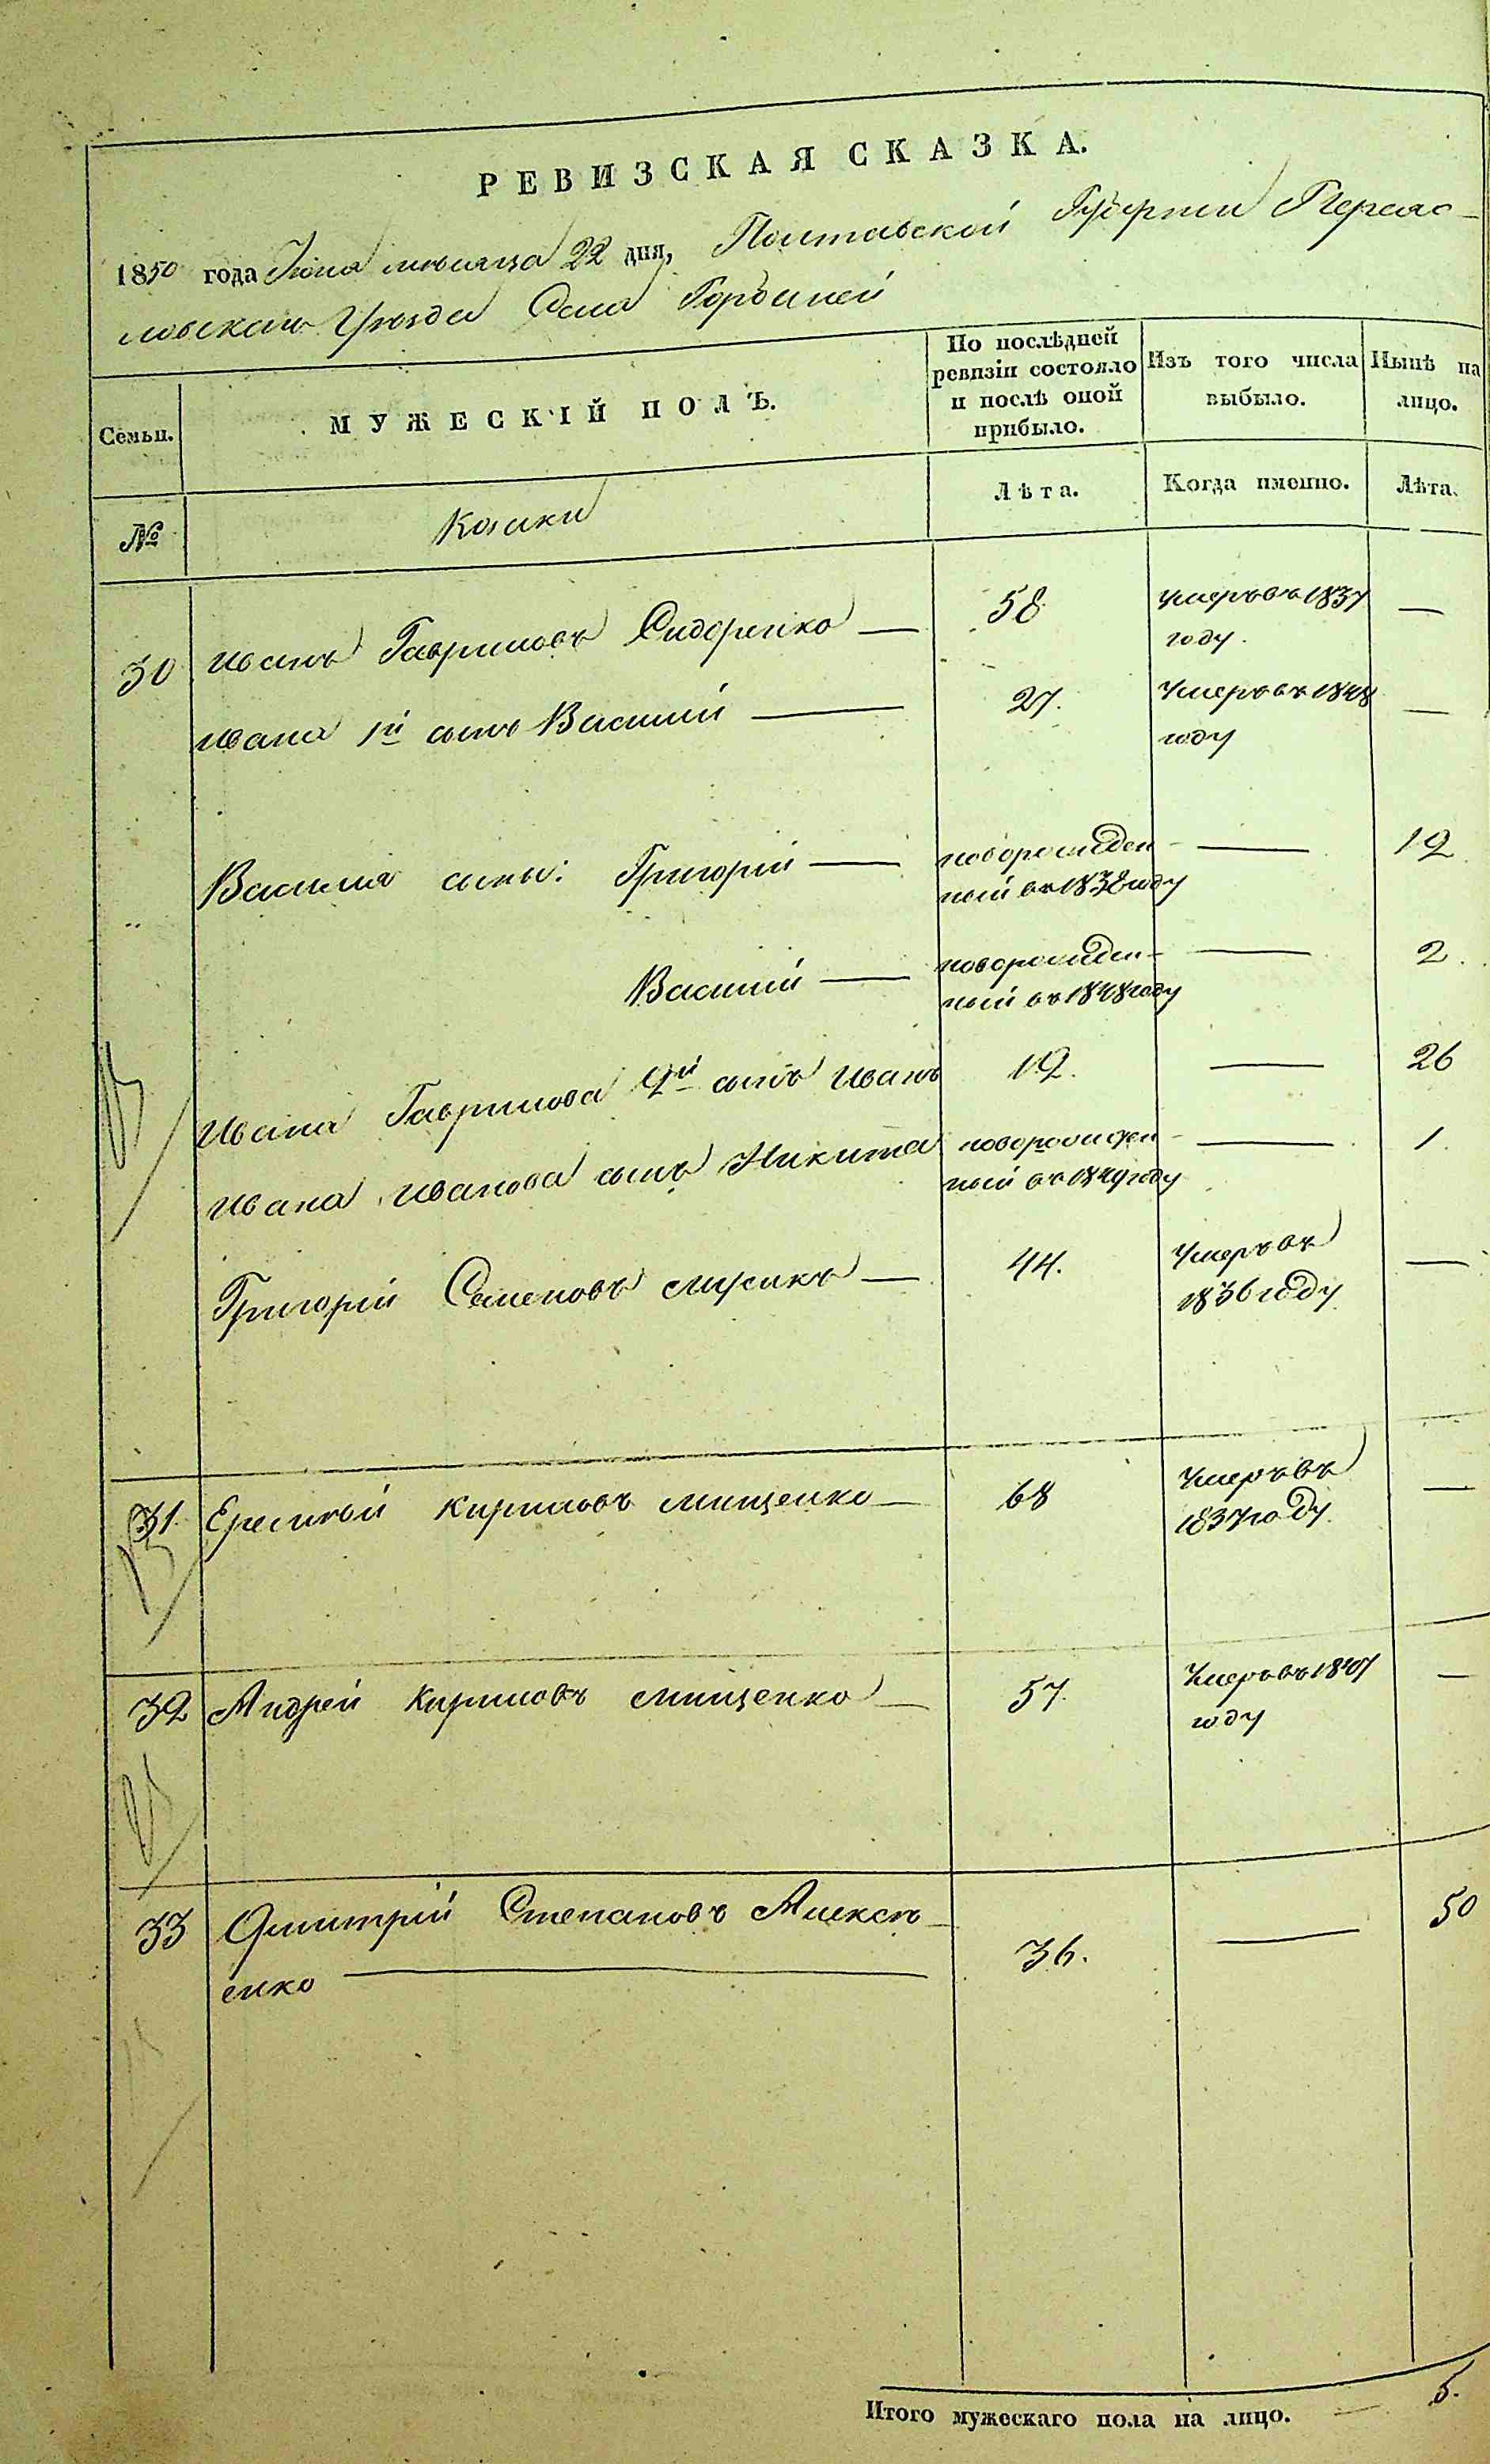 РЕВИЗСКАЯ СКАЗКА.
1850 года Июня мѣсяца 22 дня, Полтавской Губернии Переяс-
ловскаго Уѣзда Села Горбаней
Семьи.
МУЖЕСКІЙ ПОЛЪ.
По послѣдней ревизіи состояло и послѣ оной прибыло.
Изъ того числа выбыло.
Нынѣ на лицо.
№
Козаки
Лѣта.
Когда именно.
Лѣта.
30 Иванъ Гавриловъ Сидоренко — 58 умеръ въ 1837 —
году.
Ивана 1й сынъ Василий — 27. Умеръ въ 1848 —
году
Василия сыны: Григорій — новорожден- — 12
ный въ 1838 году
Василий — новорожден- — 2.
ный въ 1848 году
Ивана Гаврилова 2й сынъ Иванъ 12. — 26
Ивана Иванова сынъ Никита новорожден- — 1.
ный въ 1849 году
Григорій Семеновъ Мусикъ — 44. Умеръ въ —
1836 году
31. Еремѣй Кириловъ Мищенко — 68 Умеръ въ —
1837 году.
32 Андрей Кириловъ Мищенко — 57. Умеръ въ 1847 —
году
33 Дмитрій Степановъ Алексѣ- 36. — 50
енко —
Итого мужескаго пола на лицо. — 5.